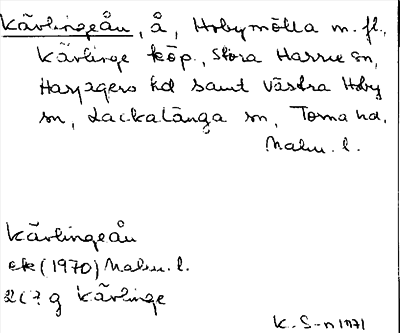 Kävlingeån, å, Hobymölla m. fl.,
Kävlinge köp., Stora Harrie sn,
Harjagers hd samt Västra Hoby
sn, Lackalänga sn, Torna hd,
Malm. l.
Kävlingeån
ek (1970) Malm. l.
2C7 g Kävlinge
K. S-n 1971